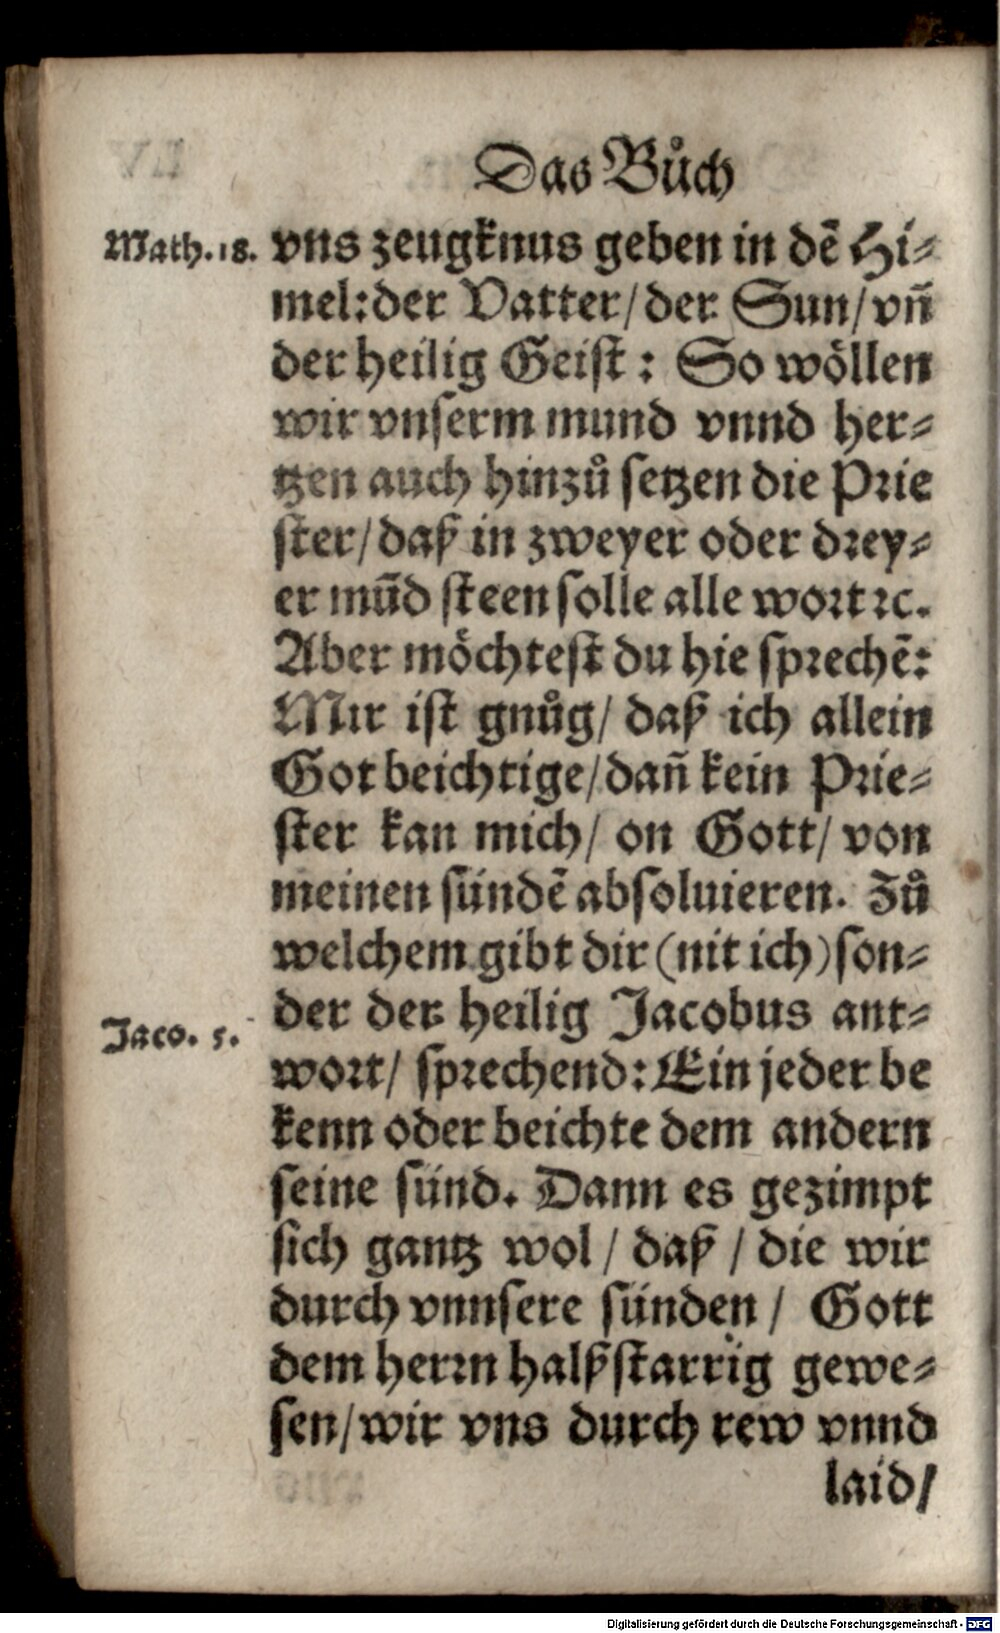 Das Bůch
Math. 18.
vns zeugknus geben in dē Hi⸗
mel: der Vatter/ der Sun/ vñ
der heilig Geist: So wöllen
wir vnserm mund vnnd her⸗
tzen auch hinzů setzen die Prie
ster/ daß in zweyer oder drey⸗
er mūd steen solle alle wort ꝛc.
Aber möchtest du hie sprechē:
Mir ist gnůg/ daß ich allein
Got beichtige/ dañ kein Prie⸗
ster kan mich/ on Gott/ von
meinen sündē absoluieren. Zů
welchem gibt dir (nit ich) son⸗
der der heilig Jacobus ant⸗
Jaco. 5.
wort/ sprechend: Ein jeder be
kenn oder beichte dem andern
seine sünd. Dann es gezimpt
sich gantz wol/ daß/ die wir
durch vnnsere sünden/ Gott
dem herrn halßstarrig gewe⸗
sen/ wir vns durch rew vnnd
laid/
Digitalisierung gefördert durch die Deutsche Forschungsgemeinschaft - DFG